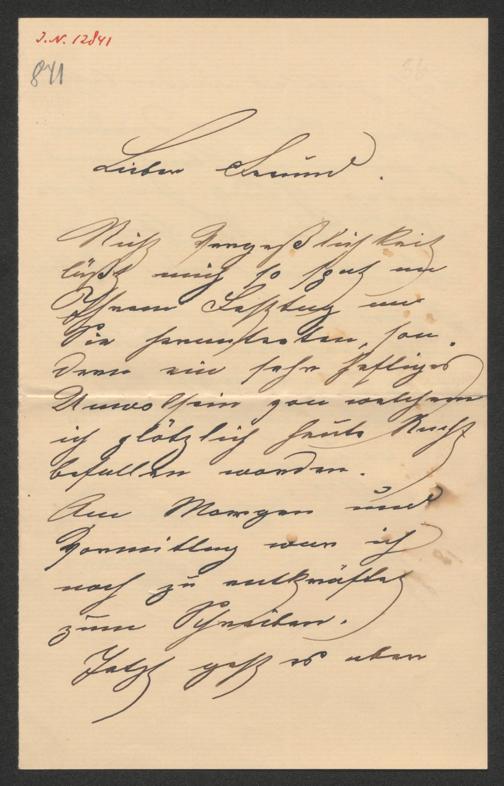 J.N. 12841
841
Lieber Freund.
Nicht Vergeßlichkeit
läßt mich so spat an
Ihrem Festtag an
Sie herantreten, son-
dern ein sehr heftiges
Unwolsein von welchem
ich plötzlich heute Nacht
befallen worden.
Am Morgen und
Vormittag war ich
noch zu entkräftet
zum Schreiben.
Jetzt geht es aber